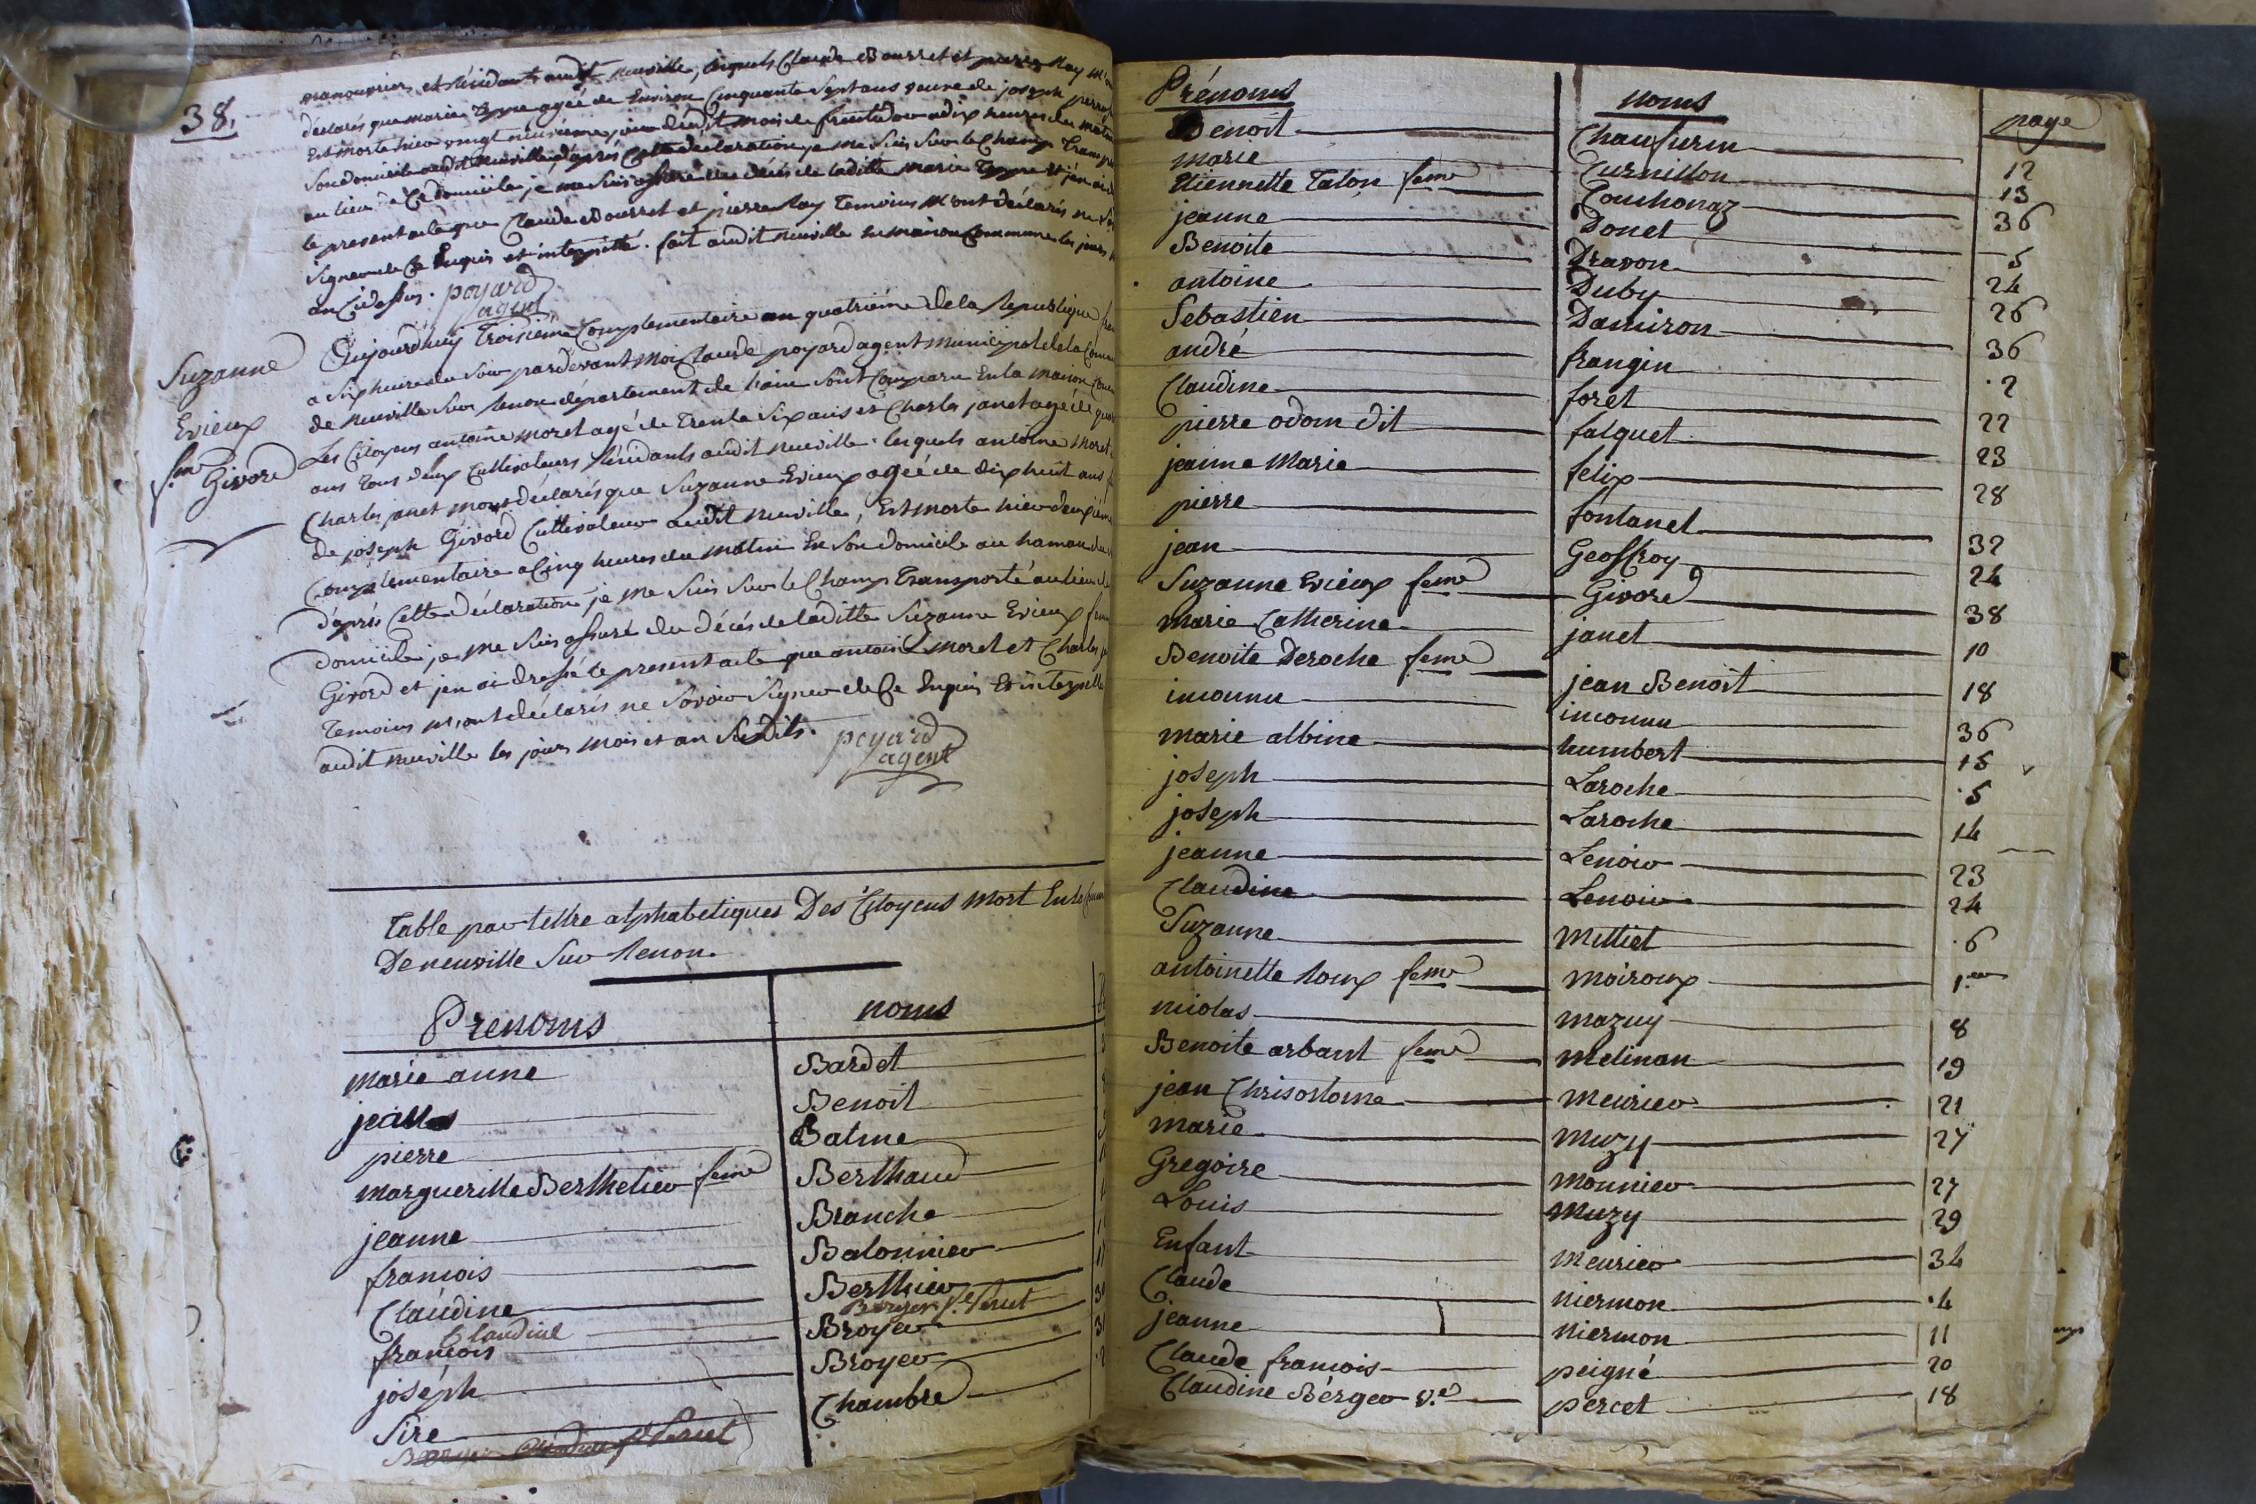 38.
manouvrier et résidants audit neuville, lesquels Claude Bourret et pierre Ray m'ont
déclarés que marie Typre agéé de Environ Cinquante Sept ans veuve de joseph
Est morte hier vingt neuvième jour dudit mois de fructidor a dix heures du matin
Son domicile audit neuville, d'après Cette déclaration je me suis Sur le Champ Transporté
au lieu de Ce domicile je me suis assuré du décés de laditte marie Typre et j'en ai
le present acte que Claude Bourret et pierre Ray Temoins m'ont déclarés ne
Signer de Ce Enquis et interpellé. fait audit neuville En maison Commune les jours
an Cidessus. poyard
agent
Suzanne
Evieux
fme Givord
Aujourdhuy Troisième Complementaire an quatrième de la Republique
a Six heures du Soir pardevant moi Claude poyard agent municipal de la
de neuville Sur Renon département de laine Sont Comparu En la maison
Les Citoyens antoine moret agé de Trente Six ans et Charles janet agé de
ans Tous deux Cultivateurs Résidants audit neuville. lesquels antoine moret
Charles janet mont déclarés que Suzanne Evieux agéé de dix huit ans
de joseph Givord Cultivateur audit neuville, Est morte hier deuxième
Complementaire a Cinq heures du matin En Son domicile au hameau
d'après Cette déclaration je me suis Sur le Champ Transporté au lieu de
domicile je me suis assuré du décés de laditte Suzanne Evieux
Givord et jen ai dressé le present acte que antoine moret et Charles
Temoins m'ont déclarés ne Savoir Signer de Ce Enquis Et interpellé
audit neuville les jours mois et an Susdits. poyard
agent
Table par lettre alphabetiques Des Citoyens mort En la
De neuville Sur Renon.
Prenoms noms
marie anne Bardet
Benoit
pierre Balme
margueritte Berthelier feme Berthaud
jeanne Branche
francois Batonnier
Claudine Berthier 30
Claudine Berger Ve Percet
francois Broyer 31
joséph Broyer
Sire Chambre
Prénoms noms page
Benoit Chaufurin 12
marie Curnillon 13
Etiennette Talon feme Couchonaz 36
jeanne Donet 5
Benoite Dravon 24
antoine Duby 26
Sebastien Damiron 36
andré frangin 2
Claudine foret 22
pierre odom dit falquet 23
jeanne Marie felix 28
pierre fontanel 32
jean Geoffroy 24
Suzanne Evieux feme Givord 38
marie Catherine janet 10
Benoite Deroche feme jean Benoit 18
inconnu inconnu 36
marie albine humbert 15
joseph Laroche 5
joseph Laroche 14
jeanne Lenoir 23
Claudine Lenoir 24
Suzanne Milliet 6
antoinette Roux feme moiroux 1er
nicolas mazuy 8
Benoite arbant feme melinan 19
jean Chrisostome meurier 21
marie muzy 27
Gregoire monnier 27
Louis muzy 29
Enfant meurier 34
Claude niermon 4
jeanne niermon 11
Claude francois peigné 20
Claudine Bérger Ve percet 18